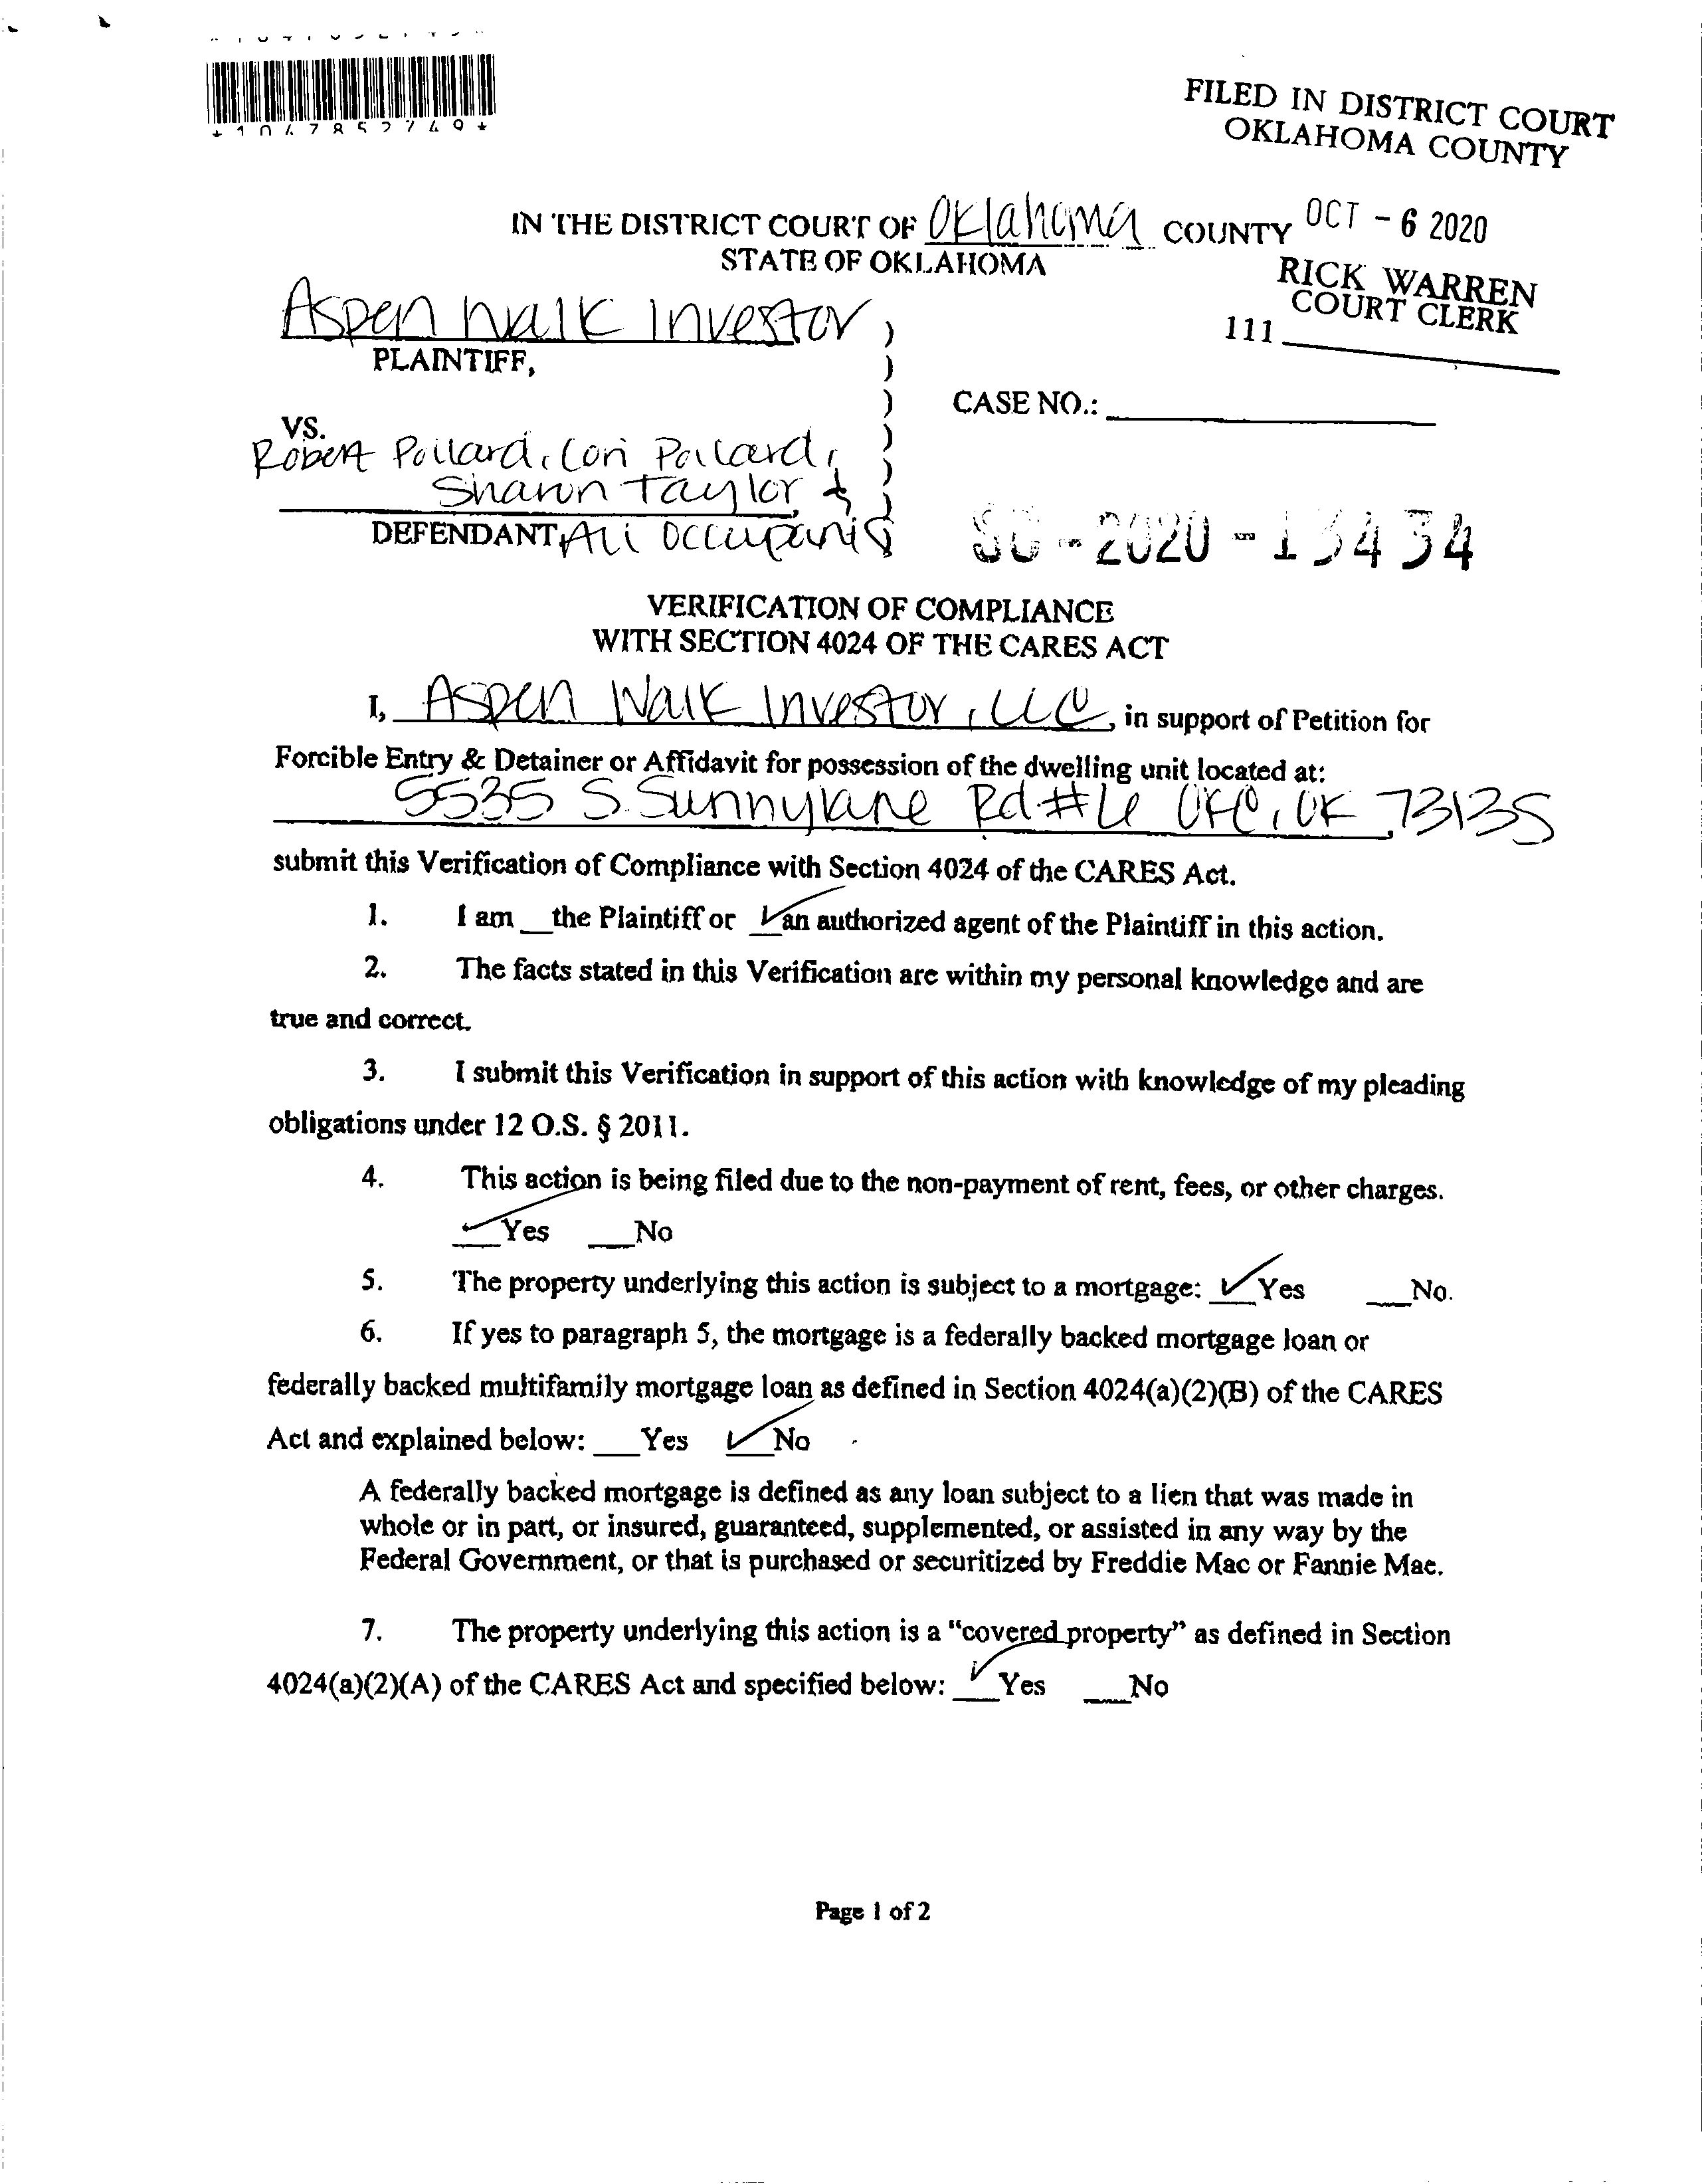 *1047852749*
FILED IN DISTRICT COURT
OKLAHOMA COUNTY
OCT - 6 2020
RICK WARREN
COURT CLERK
111
IN THE DISTRICT COURT OF Oklahoma COUNTY
STATE OF OKLAHOMA
Aspen Walk Investor )
PLAINTIFF, )
) CASE NO.:
VS. )
Robert Pollard, Lori Pollard, )
Sharon Taylor & )
DEFENDANT, All Occupants
SC-2020-13434
VERIFICATION OF COMPLIANCE
WITH SECTION 4024 OF THE CARES ACT
I, Aspen Walk Investor, LLC, in support of Petition for
Forcible Entry & Detainer or Affidavit for possession of the dwelling unit located at:
5535 S. Sunnylane Rd # OKC, OK 73135
submit this Verification of Compliance with Section 4024 of the CARES Act.
1. I am __the Plaintiff or ✓an authorized agent of the Plaintiff in this action.
2. The facts stated in this Verification are within my personal knowledge and are
true and correct.
3. I submit this Verification in support of this action with knowledge of my pleading
obligations under 12 O.S. § 2011.
4. This action is being filed due to the non-payment of rent, fees, or other charges.
✓Yes __No
5. The property underlying this action is subject to a mortgage: ✓Yes __No.
6. If yes to paragraph 5, the mortgage is a federally backed mortgage loan or
federally backed multifamily mortgage loan as defined in Section 4024(a)(2)(B) of the CARES
Act and explained below: __Yes ✓No
A federally backed mortgage is defined as any loan subject to a lien that was made in
whole or in part, or insured, guaranteed, supplemented, or assisted in any way by the
Federal Government, or that is purchased or securitized by Freddie Mac or Fannie Mae.
7. The property underlying this action is a "covered property" as defined in Section
4024(a)(2)(A) of the CARES Act and specified below: ✓Yes __No
Page 1 of 2